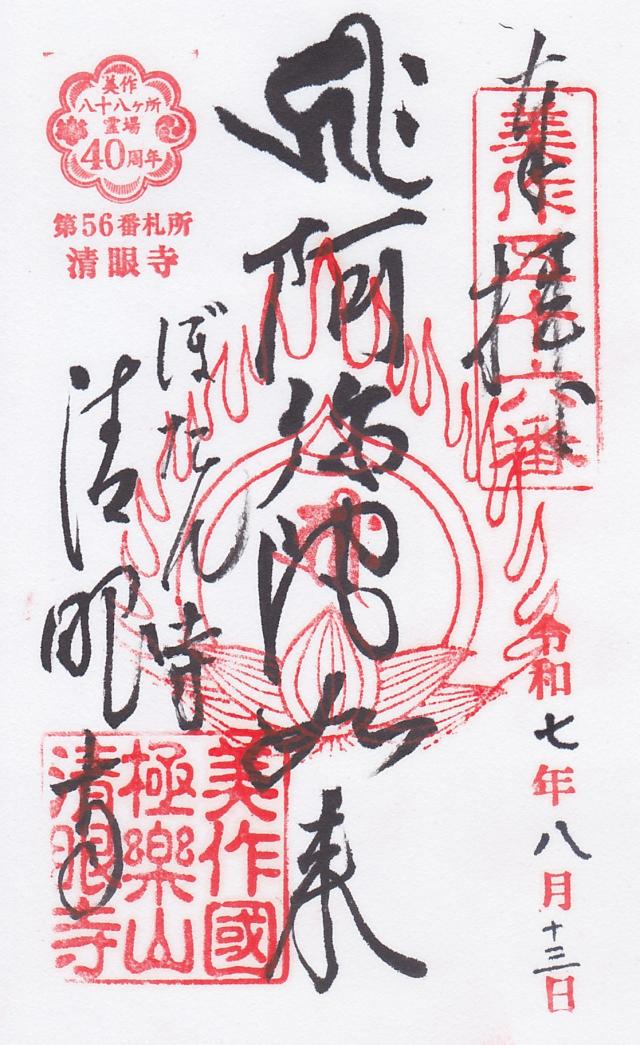 奉拝
美作五十六番
令和七年八月十三日
阿弥陀如来
ぼたん寺
清眼寺
美作國
極樂山
清眼寺
美作
八十八ヶ所
霊場
40周年
第56番札所
清眼寺